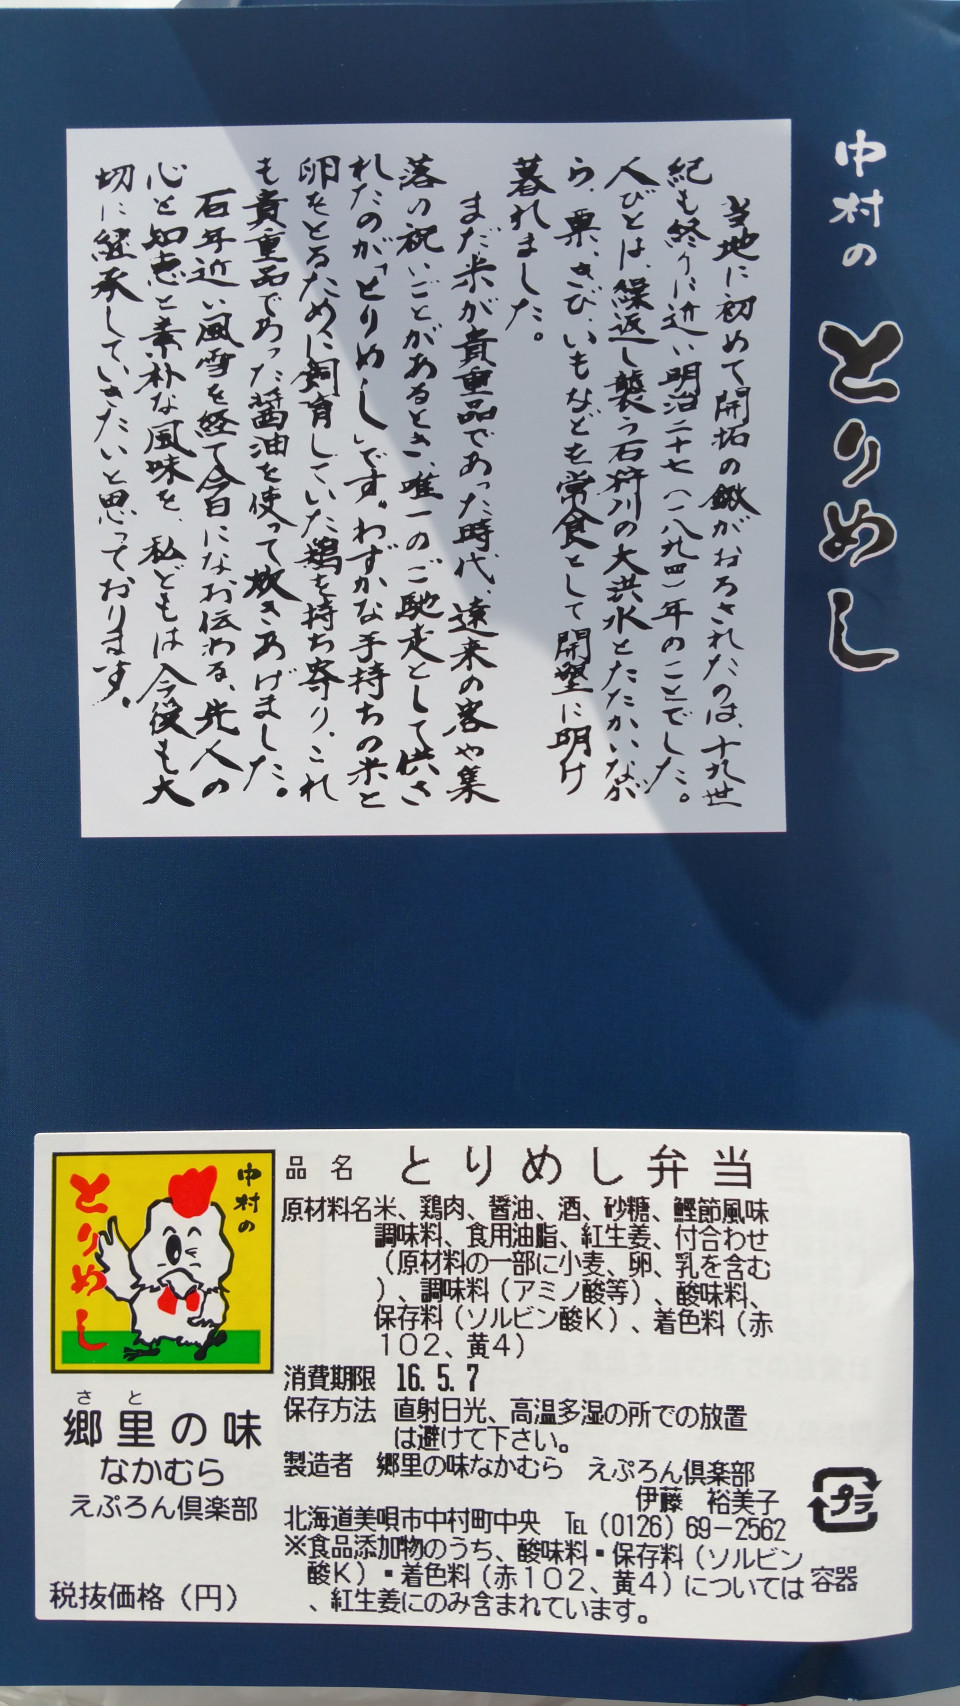 中村の とりめし
当地に初めて開拓の鍬がおろされたのは、十九世
紀も終りに近い明治二十七(一八九四)年のことでした。
人びとは、繰返し襲う石狩川の大洪水とたたかいなが
ら、粟、きび、いもなどを常食として開墾に明け
暮れました。
まだ米が貴重品であった時代、遠来の客や集
落の祝いごとがあるとき、唯一のご馳走として供さ
れたのが「とりめし」です。わずかな手持ちの米と
卵をとるために飼育していた鶏を持ち寄り、これ
も貴重品であった醤油を使って炊きあげました。
百年近い風雪を経て今日になお伝わる、先人の
心と知恵と素朴な風味を、私どもは今後も大
切に継承していきたいと思っております。
中村の
とりめし
郷里の味
さと
なかむら
えぷろん倶楽部
税抜価格(円)
品 名 とりめし弁当
原材料名米、鶏肉、醤油、酒、砂糖、鰹節風味
調味料、食用油脂、紅生姜、付合わせ
(原材料の一部に小麦、卵、乳を含む
)、調味料(アミノ酸等)、酸味料、
保存料(ソルビン酸K)、着色料(赤
102、黄4)
消費期限 16.5.7
保存方法 直射日光、高温多湿の所での放置
は避けて下さい。
製造者 郷里の味なかむら えぷろん倶楽部
伊藤 裕美子
北海道美唄市中村町中央 TEL(0126)69-2562
※食品添加物のうち、酸味料・保存料(ソルビン
酸K)・着色料(赤102、黄4)については
、紅生姜にのみ含まれています。
プラ
容器